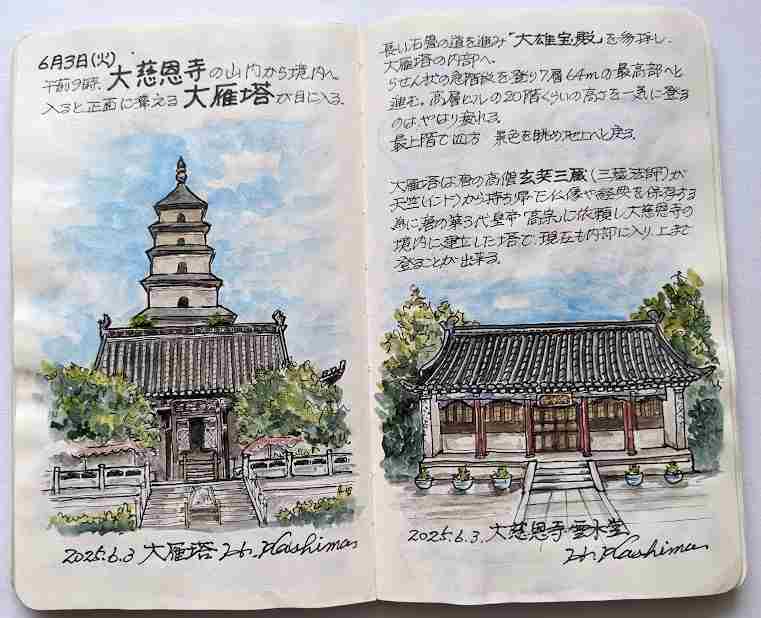 6月3日(火)
午前9時、大慈恩寺の山門から境内へ。
入ると正面に聳える大雁塔が目に入る。
2025.6.3 大雁塔 H. Hashima
長い石畳の道を進み「大雄宝殿」を参拝し、
大雁塔の内部へ。
らせん状の階段を登り7層64mの最高部へと
進む。高層ビルの20階くらいの高さを一気に登る
のはやはり疲れる。
最上階で四方 景色を眺め地上へと戻る。
大雁塔は唐の高僧玄奘三蔵(三蔵法師)が
天竺(インド)から持ち帰った仏像や経典を保存する
為に唐の第3代皇帝「高宗」に依頼し大慈恩寺の
境内に建立した塔で、現在も内部に入り上まで
登ることが出来る。
2025.6.3. 大慈恩寺 雲水堂
H. Hashima